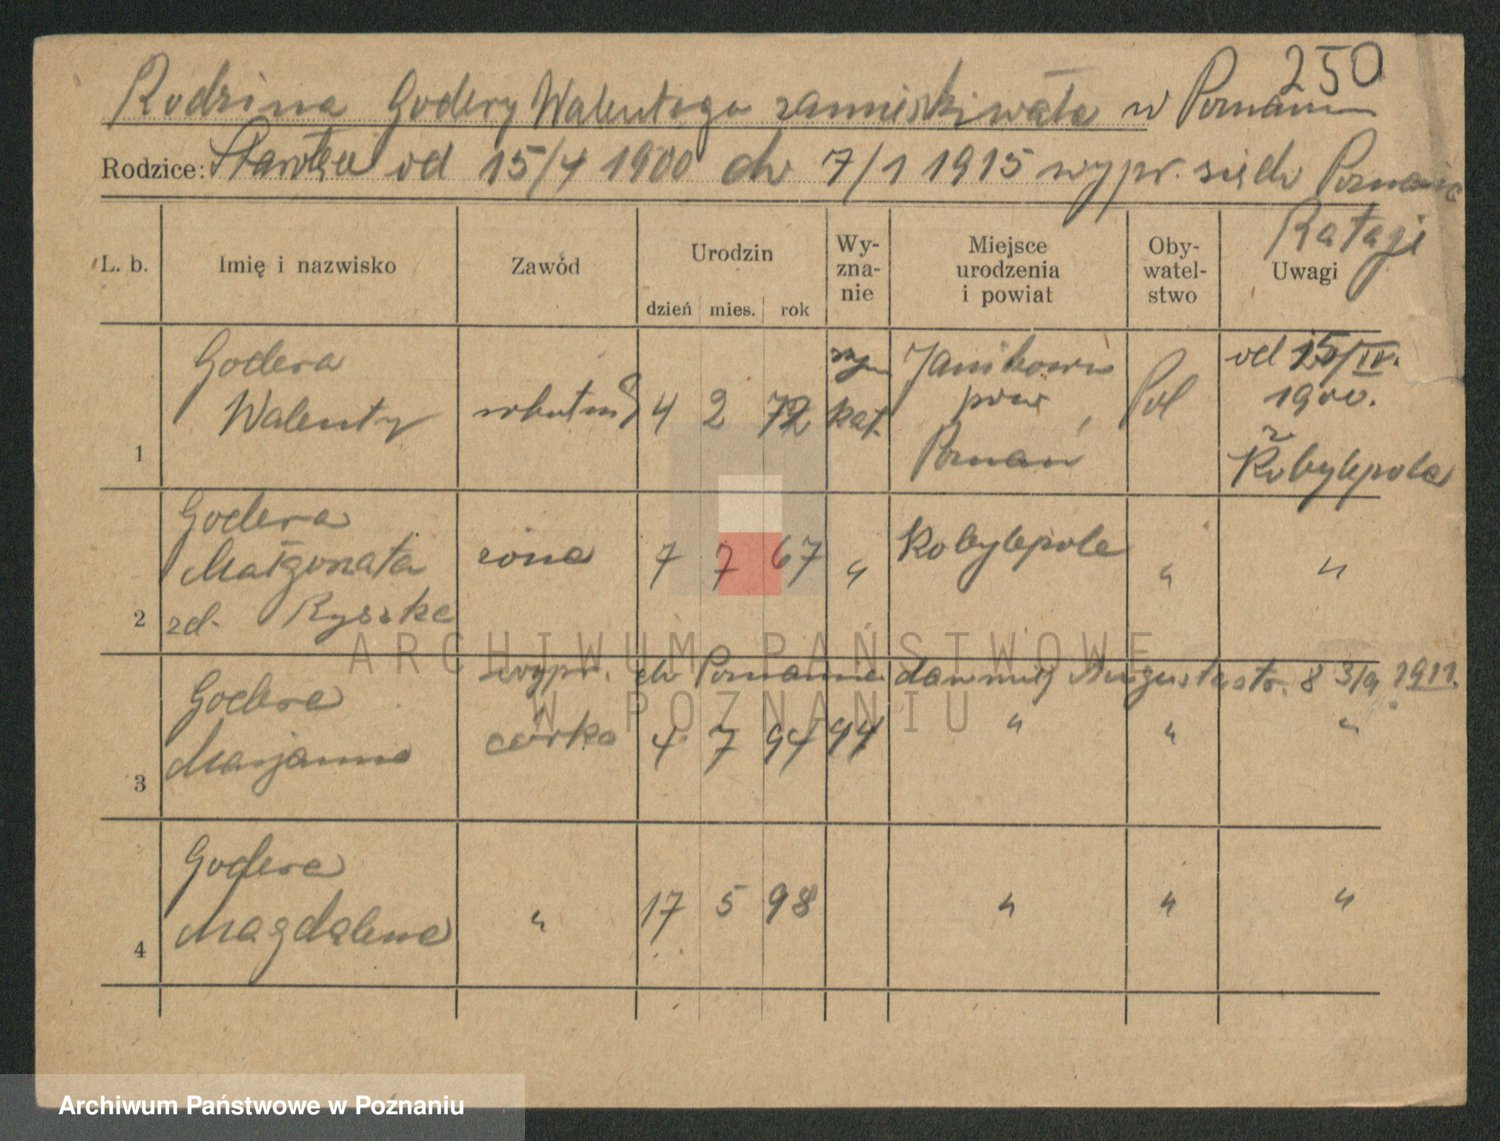 250
Rodzina Godery Walentego zamieszkiwała w Poznaniu
Rodzice: Starołęce od 15/4 1900 do 7/1 1915 wypr. się do Poznania
Rataje
L. b. Imię i nazwisko Zawód Urodzin dzień mies. rok Wy-zna-nie Miejsce urodzenia i powiat Oby-watel-stwo Uwagi
1 Godera Walenty robotnik 4 2 72 rzym kat. Janikowo pow. Poznań Pol od 15/IV. 1900. z Kobylepola
2 Godera Małgorzata zd. Ryszke żona 7 7 67 " Kobylepole " "
wypr. do Poznania dawniej Augustastr. 8 3/9. 1911.
3 Godera Marjanna córka 4 7 94 94 " " "
4 Godera Magdalena " 17 5 98 " " "
ARCHIWUM PAŃSTWOWE
W POZNANIU
Archiwum Państwowe w Poznaniu